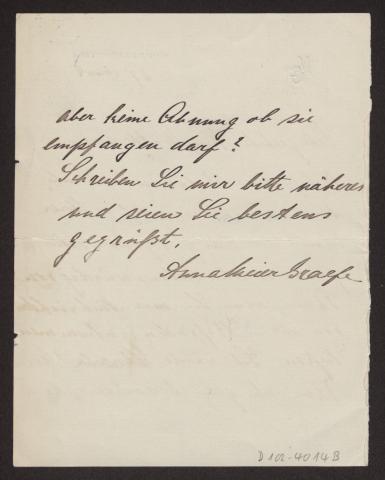 aber keine Ahnung ob sie
empfangen darf?
Schreiben Sie mir bitte näheres
und seien Sie bestens
gegrüßt,
Anna Meier Graefe
D 102-4014B